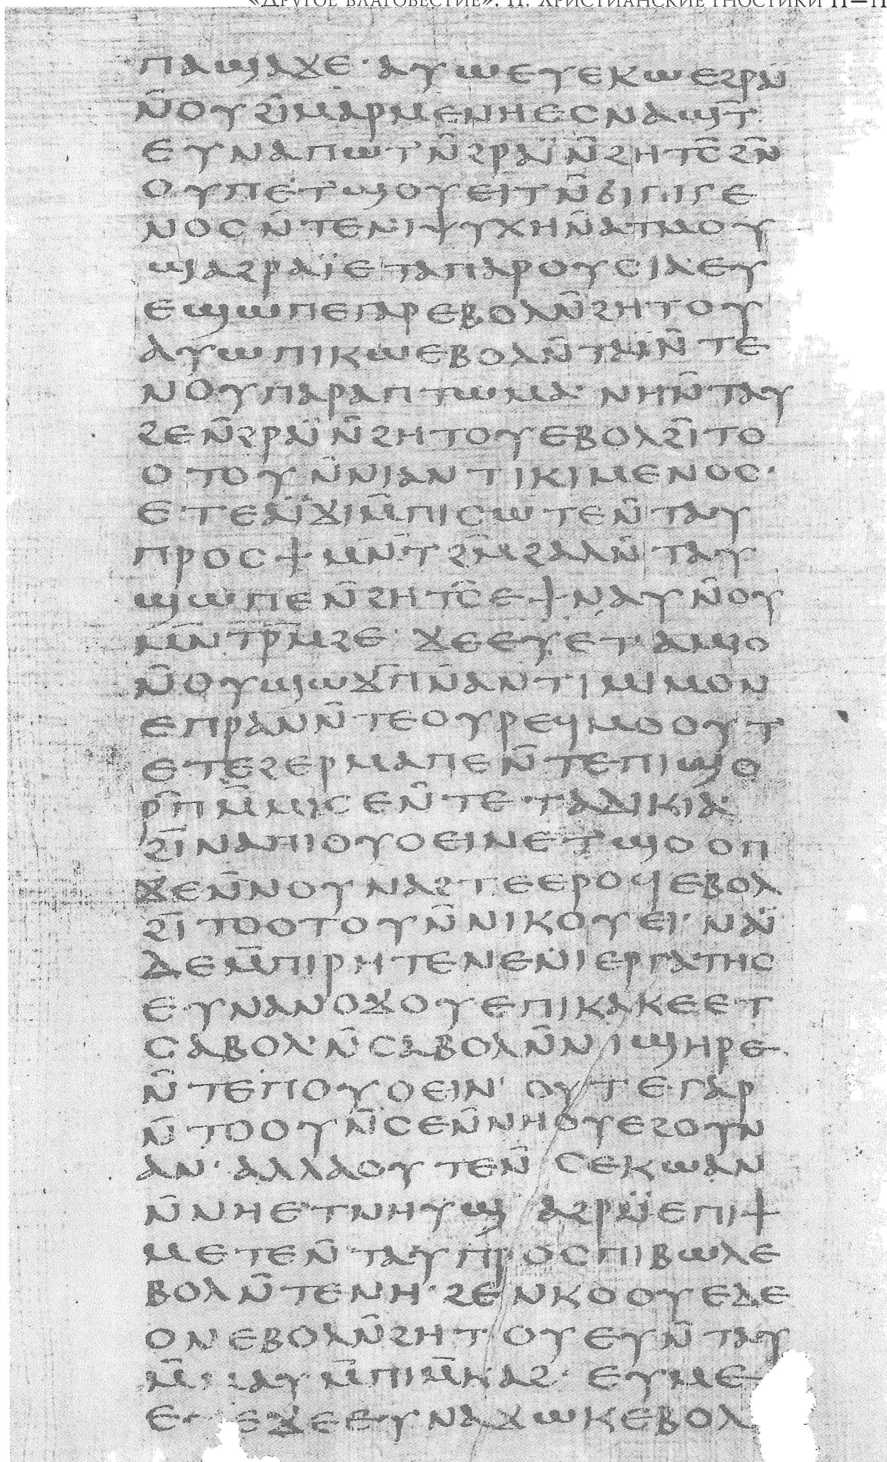 «ДРУГОЕ БЛАГОВЕСТИЕ». II. ХРИСТИАНСКИЕ ГНОСТИКИ II—II
ⲡⲁϣⲁϫⲉ· ⲁⲩⲱⲉⲩⲉⲕⲱⲉϩⲣⲁⲓ̈
ⲛ̄ⲟⲩϩⲓ̄ⲙⲁⲣⲙⲉⲛⲏⲉⲥⲛⲁϣⲧ̄·
ⲉⲩⲛⲁⲡⲱⲧⲛ̄ϩⲣⲁⲓ̈ⲛ̄ϩⲏⲧⲥ̄ϩⲛ̄
ⲟⲩⲡⲉⲧϣⲟⲩⲉⲓⲧⲛ̄ϭⲓⲡⲓⲅⲉ
ⲛⲟⲥⲛ̄ⲧⲉⲛⲓⲯⲩⲭⲏⲛ̄ⲁⲧⲙⲟⲩ
ϣⲁϩⲣⲁⲓ̈ⲉⲧⲁⲡⲁⲣⲟⲩⲥⲓⲁ·ⲉⲩ
ⲉϣⲱⲡⲉⲅⲁⲣⲉⲃⲟⲗⲛ̄ϩⲏⲧⲟⲩ
ⲁⲩⲱⲡⲓⲕⲱⲉⲃⲟⲗⲛ̄ⲧⲁⲓ̈ⲛ̄ⲧⲉ
ⲛⲟⲩⲡⲁⲣⲁⲡⲧⲱⲙⲁ· ⲛⲏⲛ̄ⲧⲁⲩ
ϩⲉⲛ̄ϩⲣⲁⲓ̈ⲛ̄ϩⲏⲧⲟⲩⲉⲃⲟⲗϩⲓ̄ⲧⲟ
ⲟⲧⲟⲩⲛ̄ⲛⲓⲁⲛⲧⲓⲕⲓⲙⲉⲛⲟⲥ·
ⲉⲧⲉⲁⲓ̈ϫⲓⲙ̄ⲡⲓⲥⲱⲧⲉⲛ̄ⲧⲁⲩ
ⲡⲣⲟⲥϯⲙⲛ̄ⲧϩⲙ̄ϩⲁⲗⲛ̄ⲧⲁⲩ
ϣⲱⲡⲉⲛ̄ϩⲏⲧⲥ̄ⲉϯⲛⲁⲩⲛ̄ⲟⲩ
ⲙⲛ̄ⲧⲣⲙ̄ϩⲉ· ϫⲉⲉⲩⲉⲧⲁⲙⲓⲟ
ⲛ̄ⲟⲩϣⲱϫⲡ̄ⲛ̄ⲁⲛⲧⲓⲙⲓⲙⲟⲛ
ⲉⲡⲣⲁⲛⲛ̄ⲧⲉⲟⲩⲣⲉϥⲙⲟⲟⲩⲧ
ⲉⲧⲉϩⲉⲣⲙⲁⲡⲉⲛ̄ⲧⲉⲡⲓϣⲟ
ⲣⲡ̄ⲙ̄ⲙⲓⲥⲉⲛ̄ⲧⲉⲧⲁⲇⲓⲕⲓⲁ·
ϩⲓ̄ⲛⲁⲡⲓⲟⲩⲟⲉⲓⲛⲉⲧϣⲟⲟⲡ
ϫⲉⲛ̄ⲛⲟⲩⲛⲁϩⲧⲉⲉⲣⲟϥⲉⲃⲟⲗ
ϩⲓ̄ⲧⲟⲟⲧⲟⲩⲛ̄ⲛⲓⲕⲟⲩⲉⲓ· ⲛⲁⲓ̈
ⲇⲉⲙ̄ⲡⲓⲣⲏⲧⲉⲛⲉⲛⲓⲉⲣⲅⲁⲧⲏⲥ
ⲉⲩⲛⲁⲛⲟϫⲟⲩⲉⲡⲓⲕⲁⲕⲉⲉⲧ
ⲥⲁⲃⲟⲗ·ⲛ̄ⲥⲁⲃⲟⲗⲛ̄ⲛⲓϣⲏⲣⲉ
ⲛ̄ⲧⲉⲡⲟⲩⲟⲉⲓⲛ· ⲟⲩⲧⲉⲅⲁⲣ
ⲛ̄ⲧⲟⲟⲩⲛ̄ⲥⲉⲛ̄ⲛⲏⲟⲩⲉϩⲟⲩⲛ
ⲁⲛ· ⲁⲗⲗⲁⲟⲩⲧⲉⲛ̄ⲥⲉⲕⲱⲁⲛ
ⲛ̄ⲛⲏⲉⲧⲛⲏⲩϣⲁϩⲣⲁⲓ̈ⲉⲡⲓϯ
ⲙⲉⲧⲉⲛ̄ⲧⲁⲩⲡⲣⲟⲥⲡⲓⲃⲱⲗⲉ
ⲃⲟⲗⲛ̄ⲧⲉⲛⲏ· ϩⲉⲛⲕⲟⲟⲩⲉⲇⲉ
ⲟⲛⲉⲃⲟⲗⲛ̄ϩⲏⲧⲟⲩⲉⲩⲛ̄ⲧⲁⲩ
ⲙ̄ⲙⲁⲩⲙ̄ⲡⲓⲙ̄ⲕⲁϩ· ⲉⲩⲙⲉ
ⲉⲩⲉϫⲉⲉⲩⲛⲁϫⲱⲕⲉⲃⲟⲗ